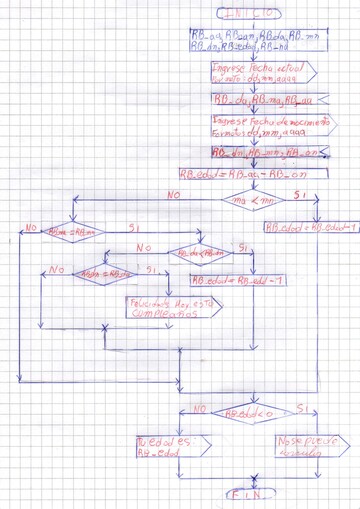 INICIO
RB_aa, RB_an, RB_da, RB_mn
RB_dn, RB_edad, RB_na
Ingrese Fecha actual
Formato: dd, mm, aaaa
RB_da, RB_ma, RB_aa
Ingrese Fecha de nacimiento
Formato: dd, mm, aaaa
RB_dn, RB_mn, RB_an
RB_edad = RB_aa - RB_an
NO
ma < mn
SI
RB_edad = RB_edad - 1
NO
SI
NO
SI
NO
SI
RB_edad = RB_edad - 1
Felicidades Hoy esta
Cumpleaños
NO
RB_edad < 0
SI
Tu edad es:
RB_edad
No se puede
FIN